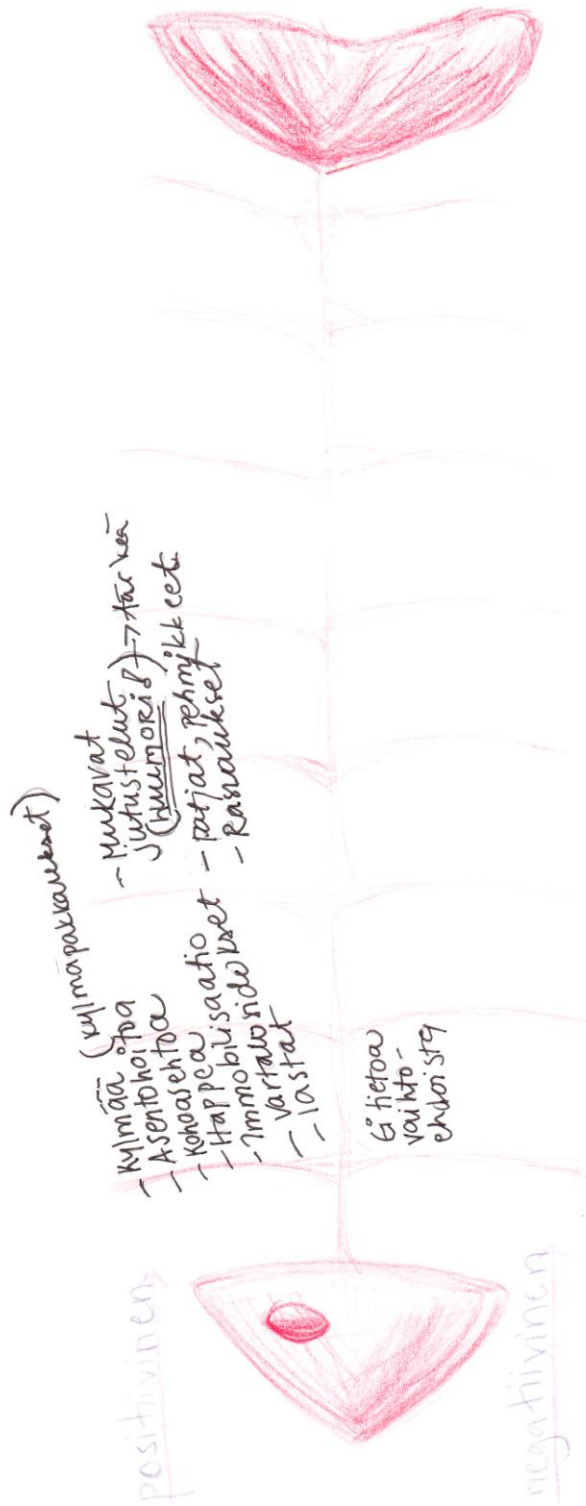 positiivinen
- Kylmää (kylmäpakkaukset)
- Asentohoitoa
- Kohoasentoa
- Happea
- Immobilisaatio
- Vartalosidokset
- lastat
- Mukavat
jutustelut
(huumori) → tärkeä
- patjat, pehmikkeet
- Rasvaukset
Ei tietoa
vaihto-
ehdoista
negatiivinen